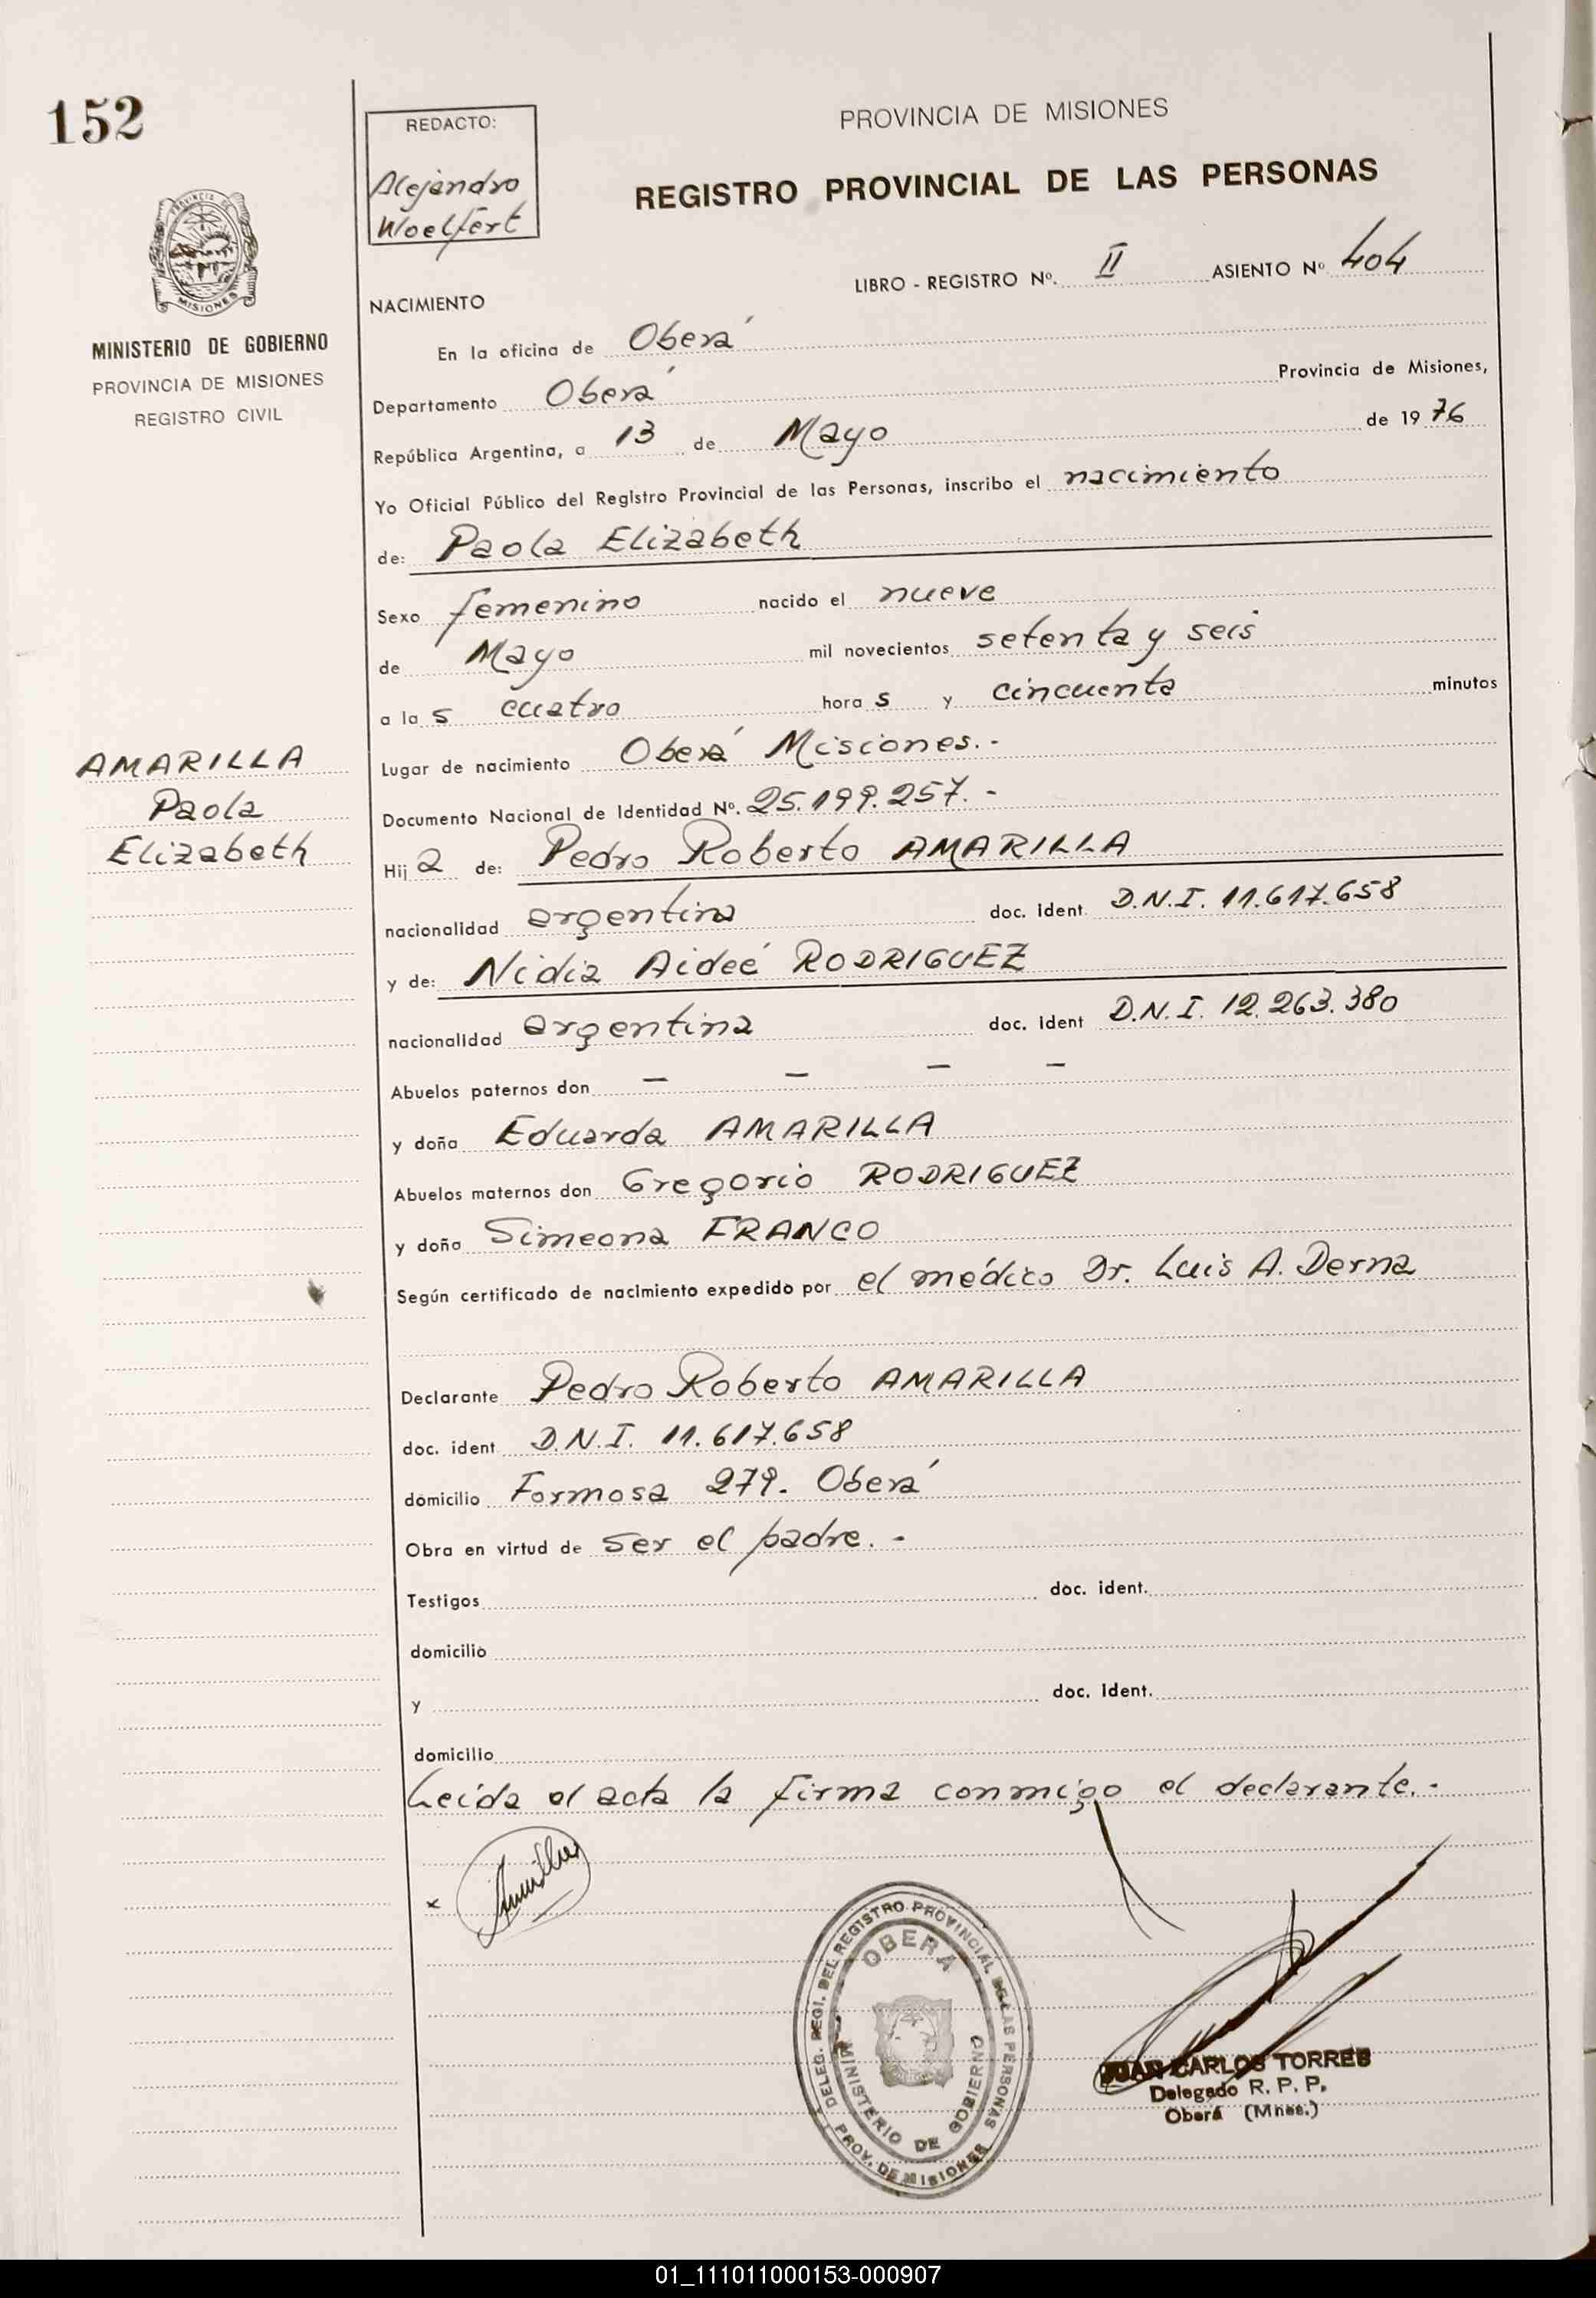 152
REDACTO:
Alejandro
Woelfert
PROVINCIA DE MISIONES
REGISTRO PROVINCIAL DE LAS PERSONAS
LIBRO - REGISTRO Nº. II ASIENTO Nº 404
PROVINCIA DE
MISIONES
MINISTERIO DE GOBIERNO
PROVINCIA DE MISIONES
REGISTRO CIVIL
NACIMIENTO
En la oficina de Oberá
Departamento Oberá Provincia de Misiones,
República Argentina, a 13 de Mayo de 1976
Yo Oficial Público del Registro Provincial de las Personas, inscribo el nacimiento
de: Paola Elizabeth
Sexo femenino nacido el nueve
de Mayo mil novecientos setenta y seis
a la s cuatro hora s y cincuenta minutos
Lugar de nacimiento Oberá Misiones.-
Documento Nacional de Identidad Nº. 25.199.257.-
AMARILLA
Paola
Elizabeth
Hij a de: Pedro Roberto AMARILLA
nacionalidad argentina doc. ident. D.N.I. 11.617.658
y de: Nidia Aideé RODRIGUEZ
nacionalidad argentina doc. ident D.N.I. 12.263.380
Abuelos paternos don — — — —
y doña Eduarda AMARILLA
Abuelos maternos don Gregorio RODRIGUEZ
y doña Simeona FRANCO
Según certificado de nacimiento expedido por el médico Dr. Luis A. Derna
Declarante Pedro Roberto AMARILLA
doc. ident. D.N.I. 11.617.658
domicilio Formosa 279. Oberá
Obra en virtud de ser el padre.-
Testigos doc. ident.
domicilio
y doc. ident.
domicilio
Leida el acta la firma conmigo el declarante.-
x
DELEG. REGI. DEL REGISTRO PROVINCIAL DE LAS PERSONAS
OBERA
MINISTERIO DE GOBIERNO
PROV. DE MISIONES
JUAN CARLOS TORRES
Delegado R. P. P.
Oberá (Mnes.)
01_111011000153-000907